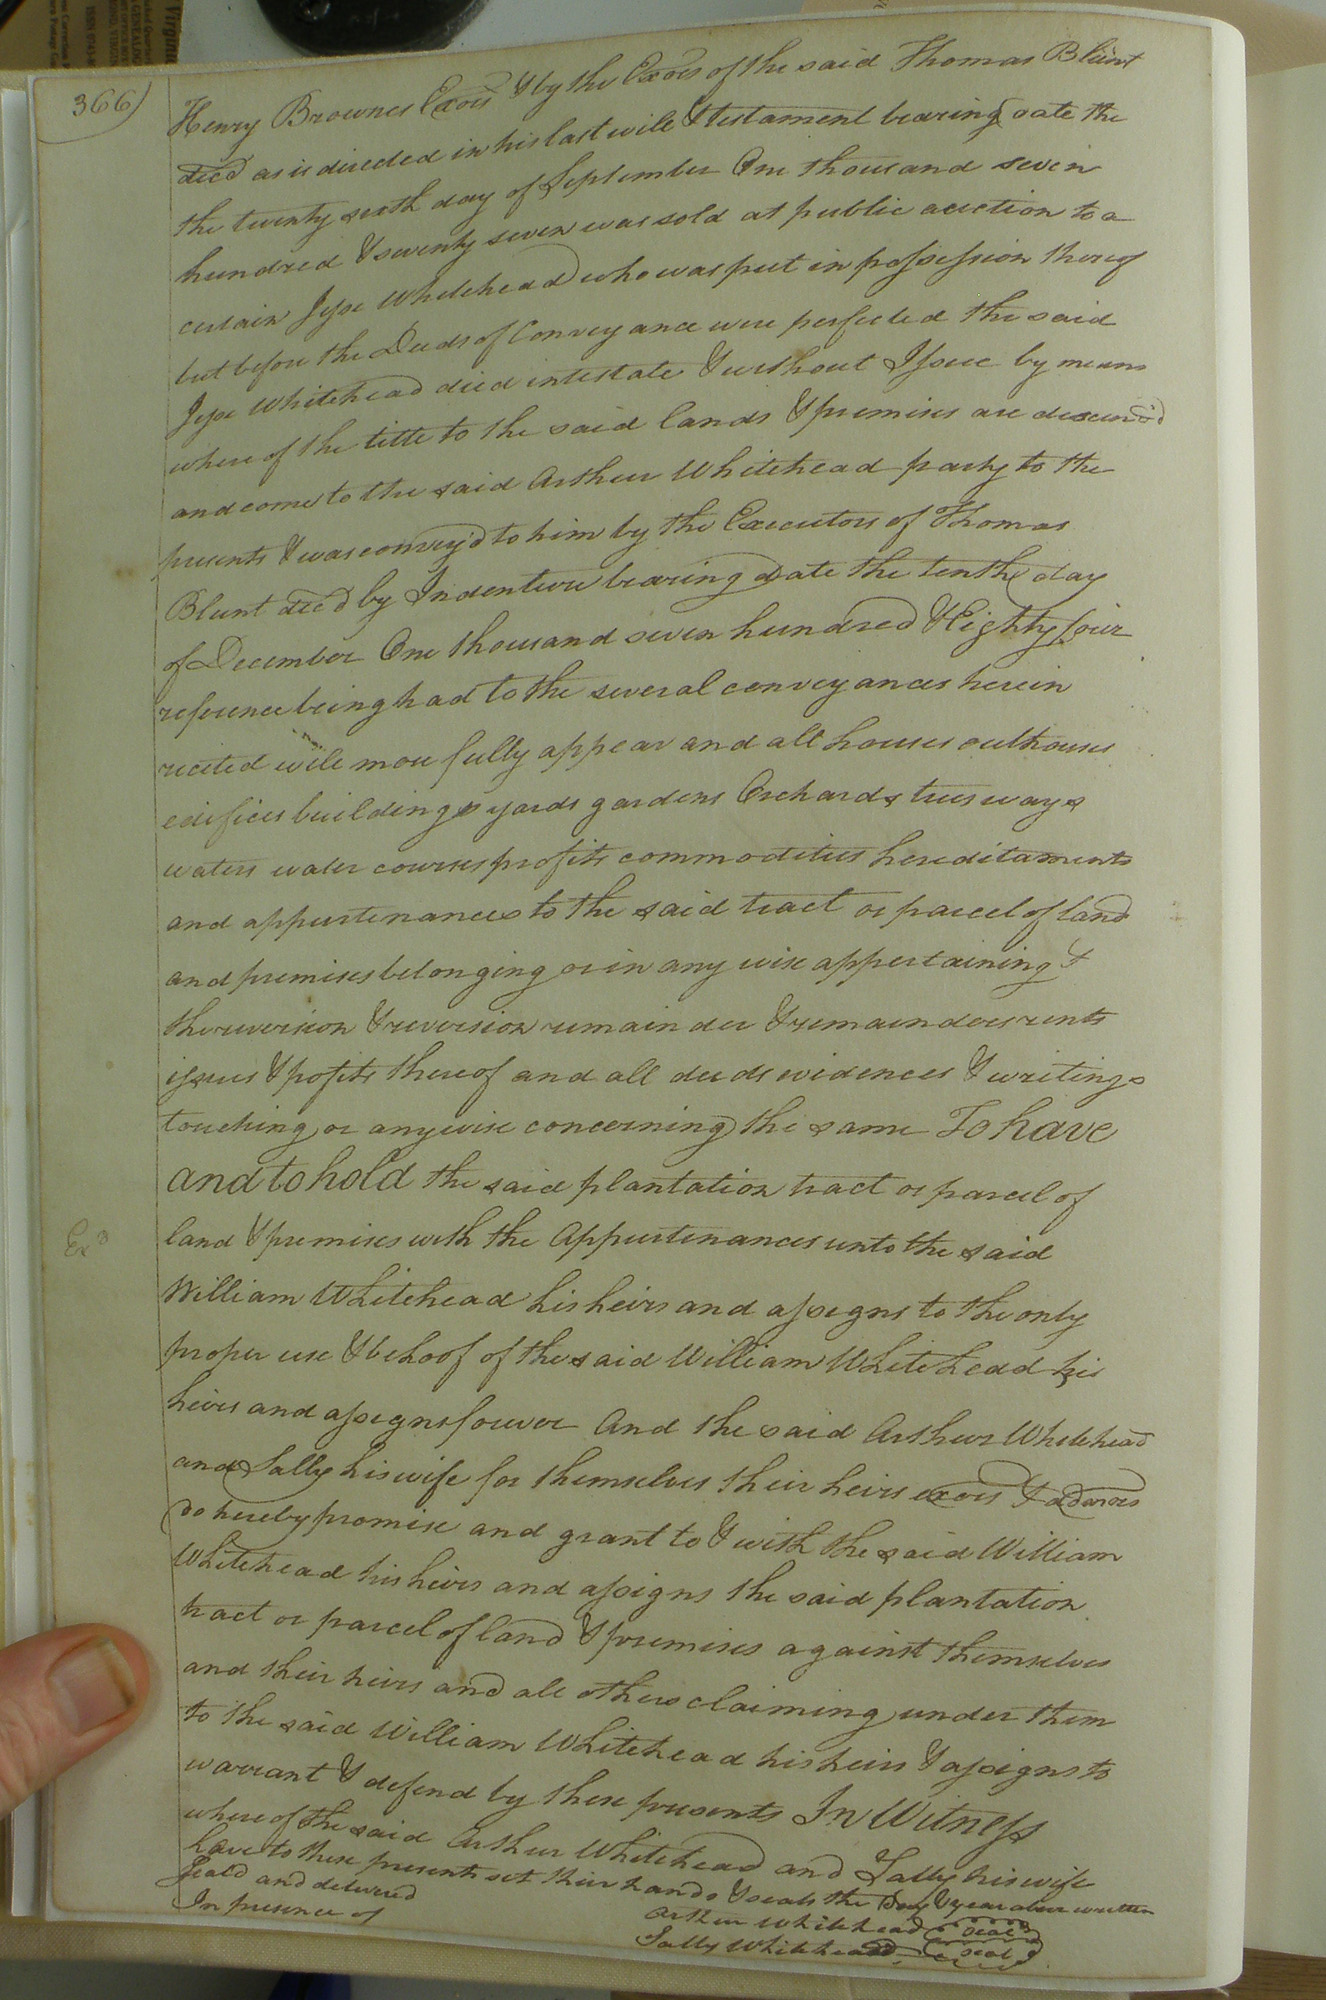 366)
Henry Brownes Exors & by the Exors of the said Thomas Blunt
decd as is directed in his last will & testament bearing date the
the twenty sixth day of September One thousand seven
hundred & seventy seven was sold at public auction to a
certain Jesse Whitehead who was put in possession thereof
but before the Deeds of Conveyance were perfected the said
Jesse Whitehead died intestate & without Issue by means
where of the title to the said lands & premises are descend
and come to the said Arthur Whitehead party to the
presents & was convey'd to him by the Executors of Thomas
Blunt decd by Indenture bearing date the tenth day
of December One thousand seven hundred & Eighty four
reference being had to the several conveyances herein
recited will more fully appear and all houses outhouses
edifices buildings yards gardens Orchards trees ways
waters water courses profits commodities hereditaments
and appurtenances to the said tract or parcel of land
and premises belonging or in any wise appertaining &
the reversion & reversion remainder & remainders rents
issues & profits thereof and all deeds evidences & writings
touching or anywise concerning the same To have
and to hold the said plantation tract or parcel of
land & premises with the Appurtenances unto the said
Exd
William Whitehead his heirs and assigns to the only
proper use & behoof of the said William Whitehead his
heirs and assigns forever And the said Arthur Whitehead
and Sally his wife for themselves their heirs exors & admors
do hereby promise and grant to & with the said William
Whitehead his heirs and assigns the said plantation
tract or parcel of land & premises against themselves
and their heirs and all others claiming under them
to the said William Whitehead his heirs & assigns to
warrant & defend by these presents In Witness
where of the said Arthur Whitehead and Sally his wife
have to these presents set their hands & seals the Day & year above written
Seald and delivered
In presence of
Arthur Whitehead seal
Sally Whitehead seal